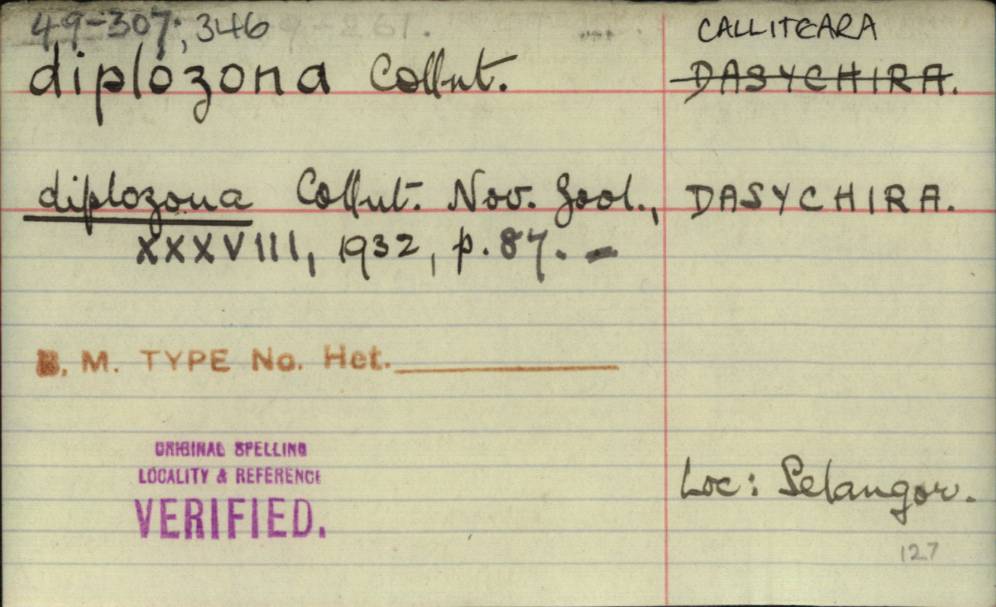 49-307; 346 9-261.
diplozona Collnt. CALLITEARA
DASYCHIRA.
diplozona Collnt. Nov. Zool., DASYCHIRA.
XXXVIII, 1932, p. 87. -
B. M. TYPE No. Het.
ORIGINAL SPELLING
LOCALITY & REFERENCE
VERIFIED.
Loc: Selangor.
127